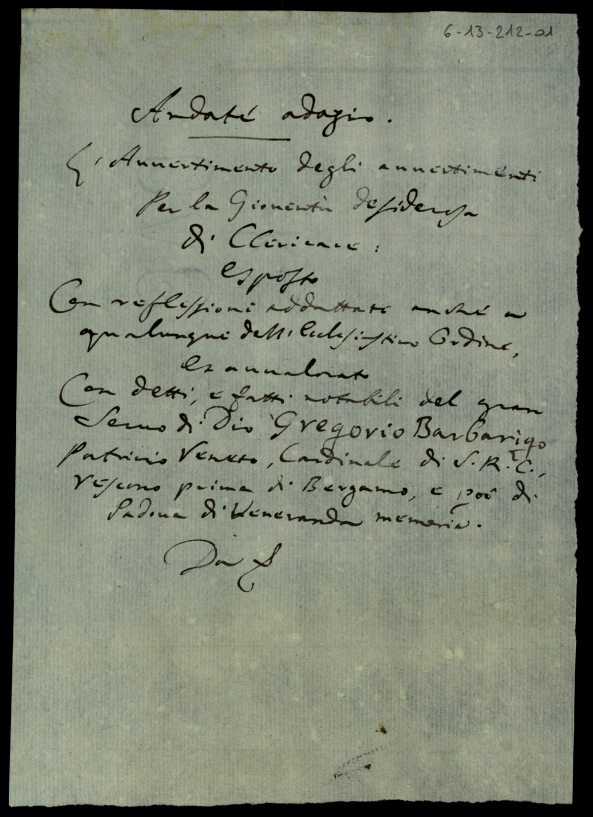 6-13-212-01
Andate adagio.
L'Avvertimento degli avvertimenti
Per la Gioventù desiderosa
di Clericare:
esposto
Con reflessioni addattate anche a
qualunque dell'Eclesiastico Ordine,
et avvalorato
Con detti, e fatti notabili del gran
Servo di Dio Gregorio Barbarigo
Patricio Veneto, Cardinale di S. R. C.,
Vescovo prima di Bergamo, e poi di
Padova di Veneranda memoria.
Da